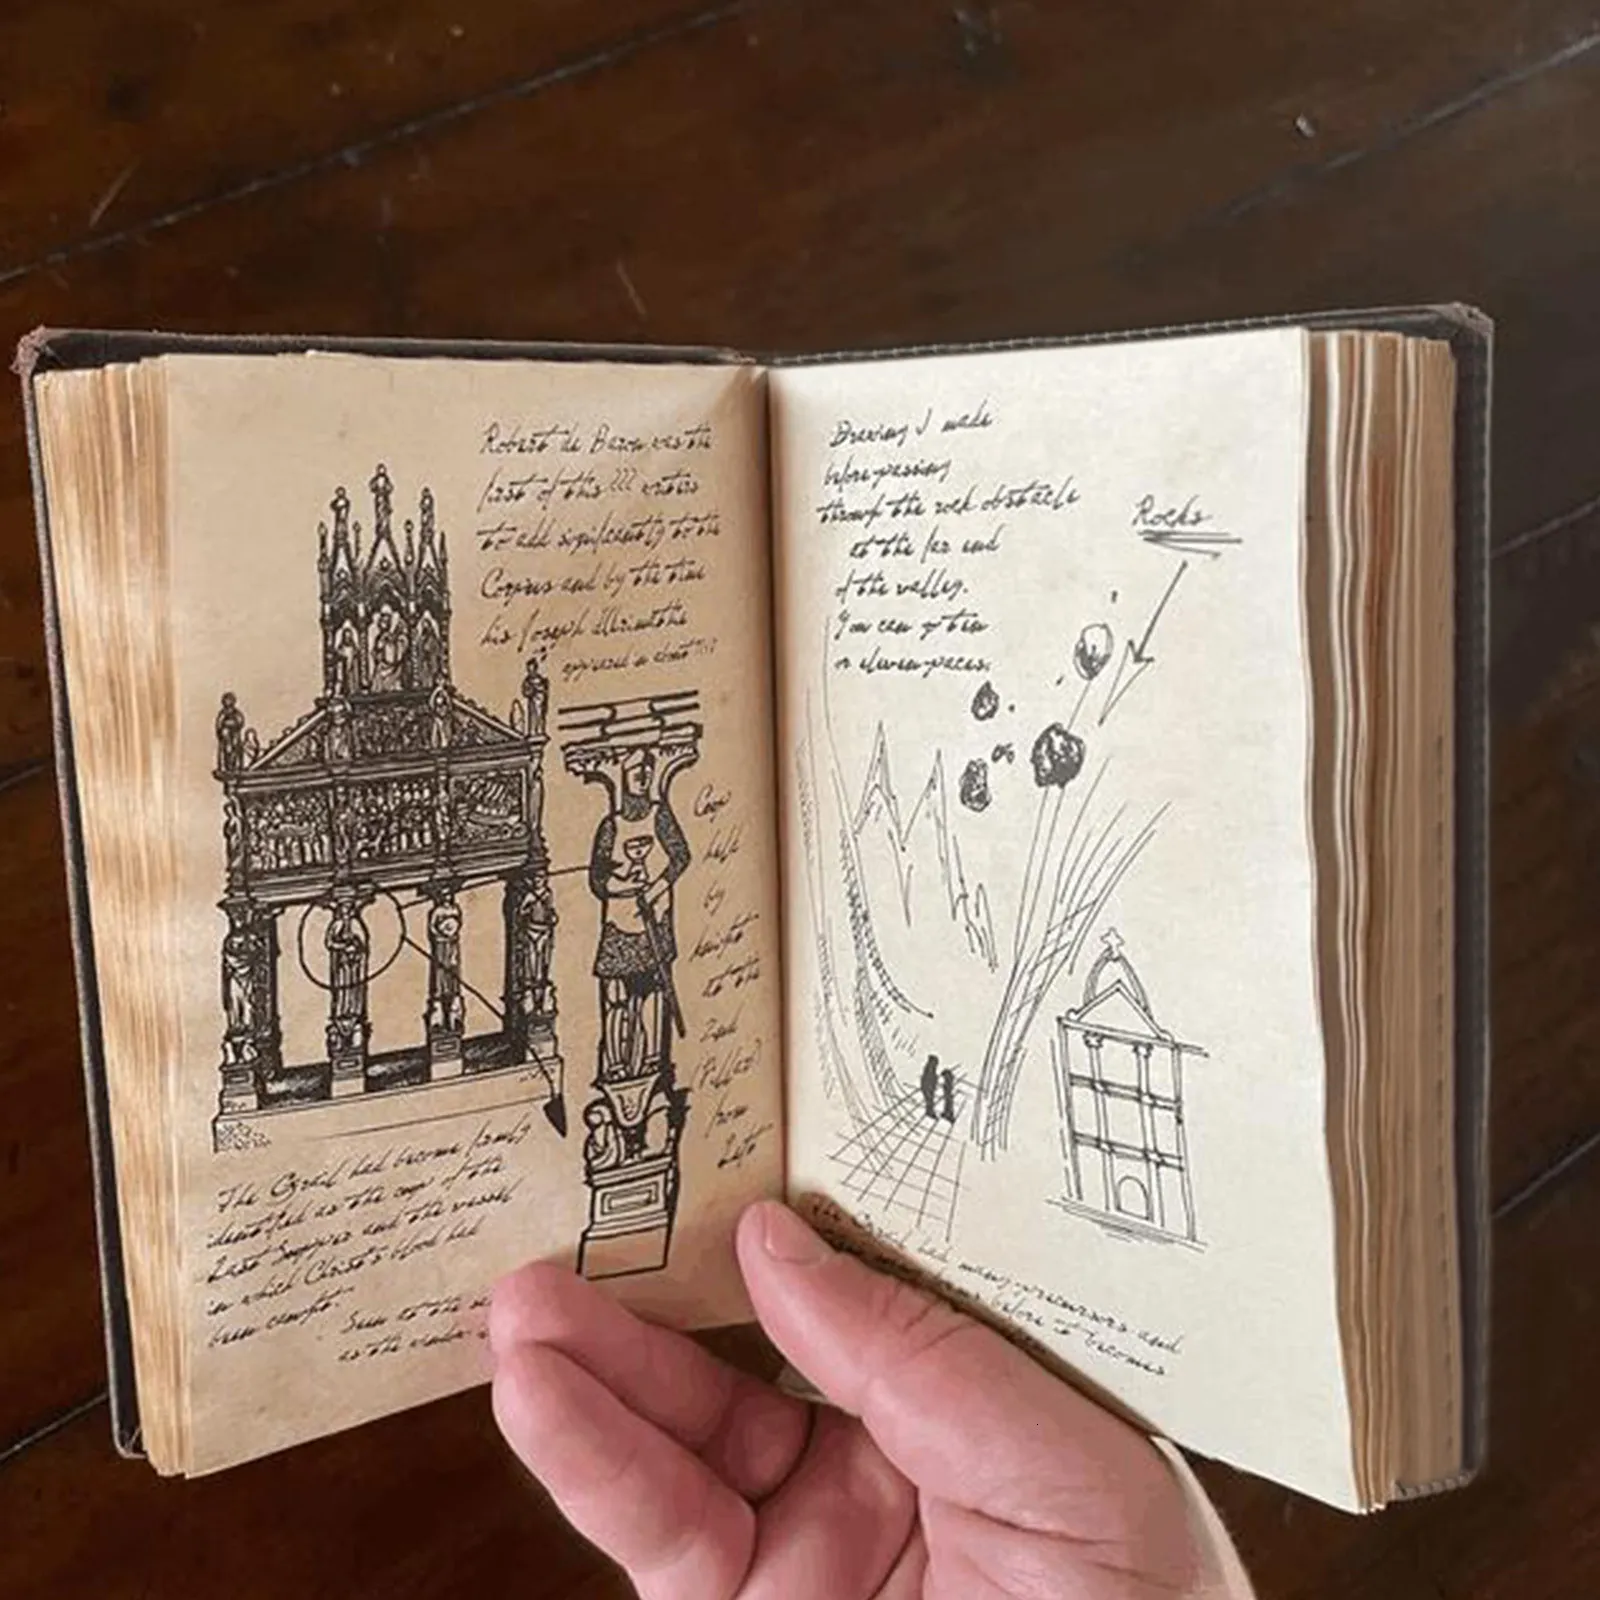 Robert de Baron was the
first of this ??? writers
to add significantly to the
Corpus and by the time
his Joseph
appeared in about
Coop
held
by
knight
to the
2nd
(Pillar)
from
Left
The Grail had become firmly
identified as the coop of the
Last Supper and the vessel
in which Christ's blood had
been caught.
Seen to the
as the
Drawing I made
before passing
through the rock obstacle
at the far end
of the valley.
You can go ten
or eleven paces.
Rocks
The Grail had many precursors and
before it becomes